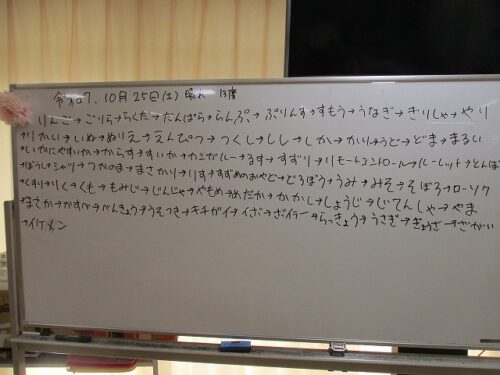 令和7、10月25日(土) 晴れ 13度
りんご→ごりら→らくだ→だんぱら→らんぷ→ぷりんす→すもう→うなぎ→きりしゃ→やり
→りかい→いぬ→ぬりえ→えんぴつ→つくし→しし→しか→かりゅうど→どま→まるい
→かにやすいか→からす→すいか→カンガルー→るす→すずり→リモートコントロール→ルーレット→とんぼ
→ぼうし→シャツ→つかのま→まさかり→りす→すずめのおやど→どろぼう→うみ→みそ→そぼろ→ローソク
→くすり→りく→くも→もみじ→じんじゃ→やもめ→めだか→かかし→しょうじ→じてんしゃ→やま
→まさか→かすべ→べんきょう→うえつき→キチガイ→イざ→ざイラー→らっきょう→うさぎ→ぎょうざ→ざがい
→イケメン